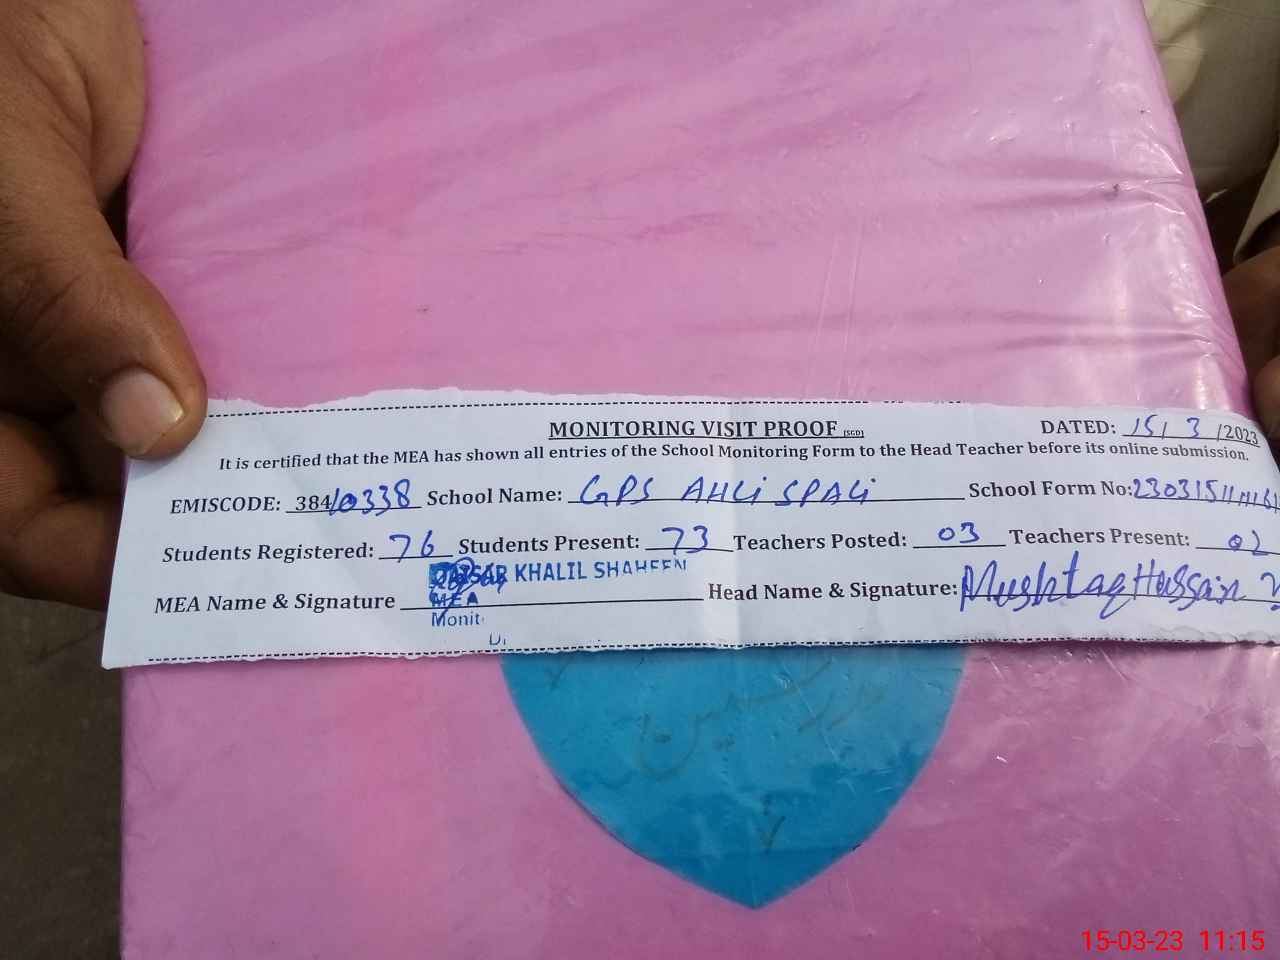 MONITORING VISIT PROOF (SGD) DATED: 15/ 3 /2023
It is certified that the MEA has shown all entries of the School Monitoring Form to the Head Teacher before its online submission.
EMISCODE: 38410338 School Name: GPS AHLi SPALi School Form No:
Students Registered: 76 Students Present: 73 Teachers Posted: 03 Teachers Present: 02
KHALIL SHAHEEN
MEA Name & Signature Head Name & Signature: Mushtaq Hussain
MEA
Monit
15-03-23 11:15